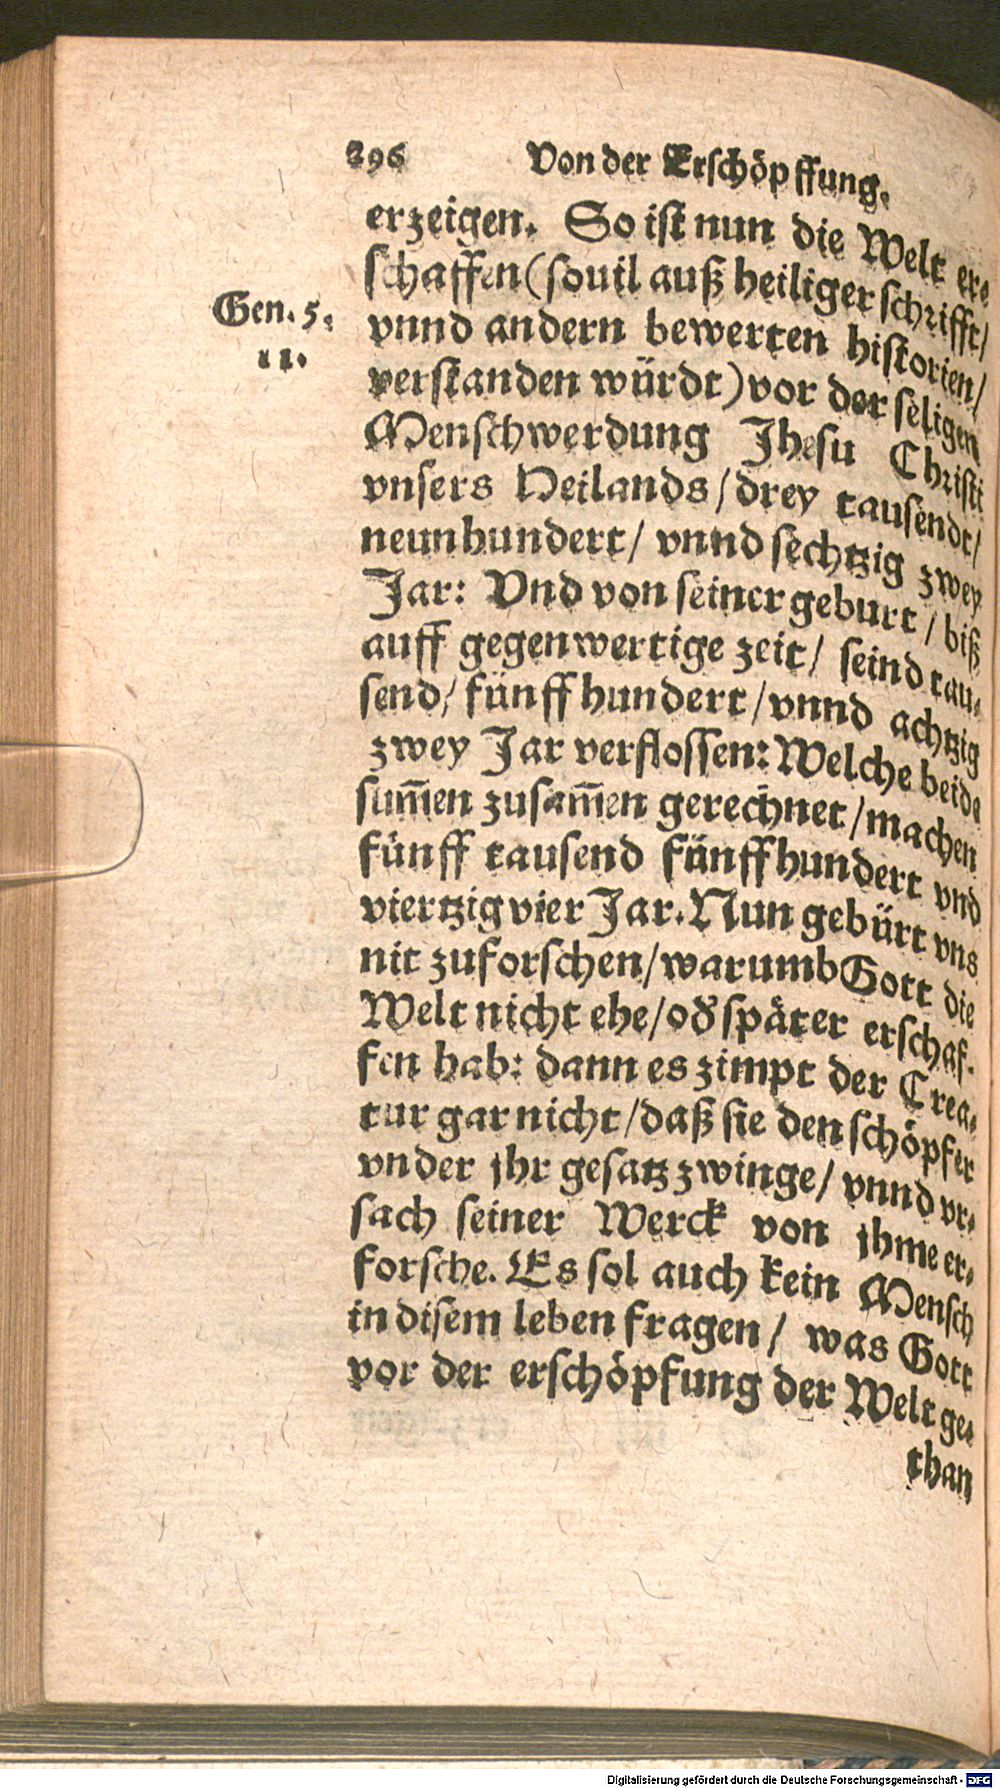 296 Von der Erschöpffung.
erzeigen. So ist nun die Welt er-
schaffen (souil auß heiliger schrifft/
Gen. 5.
11.
vnnd andern bewerten historien/
verstanden würdt) vor der seligen
Menschwerdung Jhesu Christi
vnsers Heilands/ drey tausendt/
neunhundert/ vnnd sechtzig zwey
Jar: Vnd von seiner geburt/ biß
auff gegenwertige zeit/ seind tau-
send/ fünff hundert/ vnnd achtzig
zwey Jar verflossen: Welche beide
sum̄en zusam̄en gerechnet/ machen
fünff tausend fünffhundert vnd
viertzig vier Jar. Nun gebürt vns
nit zuforschen/ warumb Gott die
Welt nicht ehe/ od̕ später erschaf-
fen hab: dann es zimpt der Crea-
tur gar nicht/ daß sie den schöpfer
vnder jhr gesatz zwinge/ vnnd vr-
sach seiner Werck von jhme er-
forsche. Es sol auch kein Mensch
in disem leben fragen/ was Gott
vor der erschöpfung der Welt ge-
than
Digitalisierung gefördert durch die Deutsche Forschungsgemeinschaft - DFG